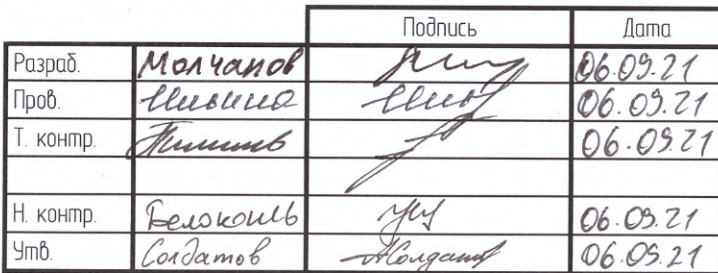 Подпись Дата
Разраб. Молчанов 06.09.21
Пров. 06.09.21
Т. контр. 06.09.21
Н. контр. Белоконь 06.09.21
Утв. Солдатов 06.09.21